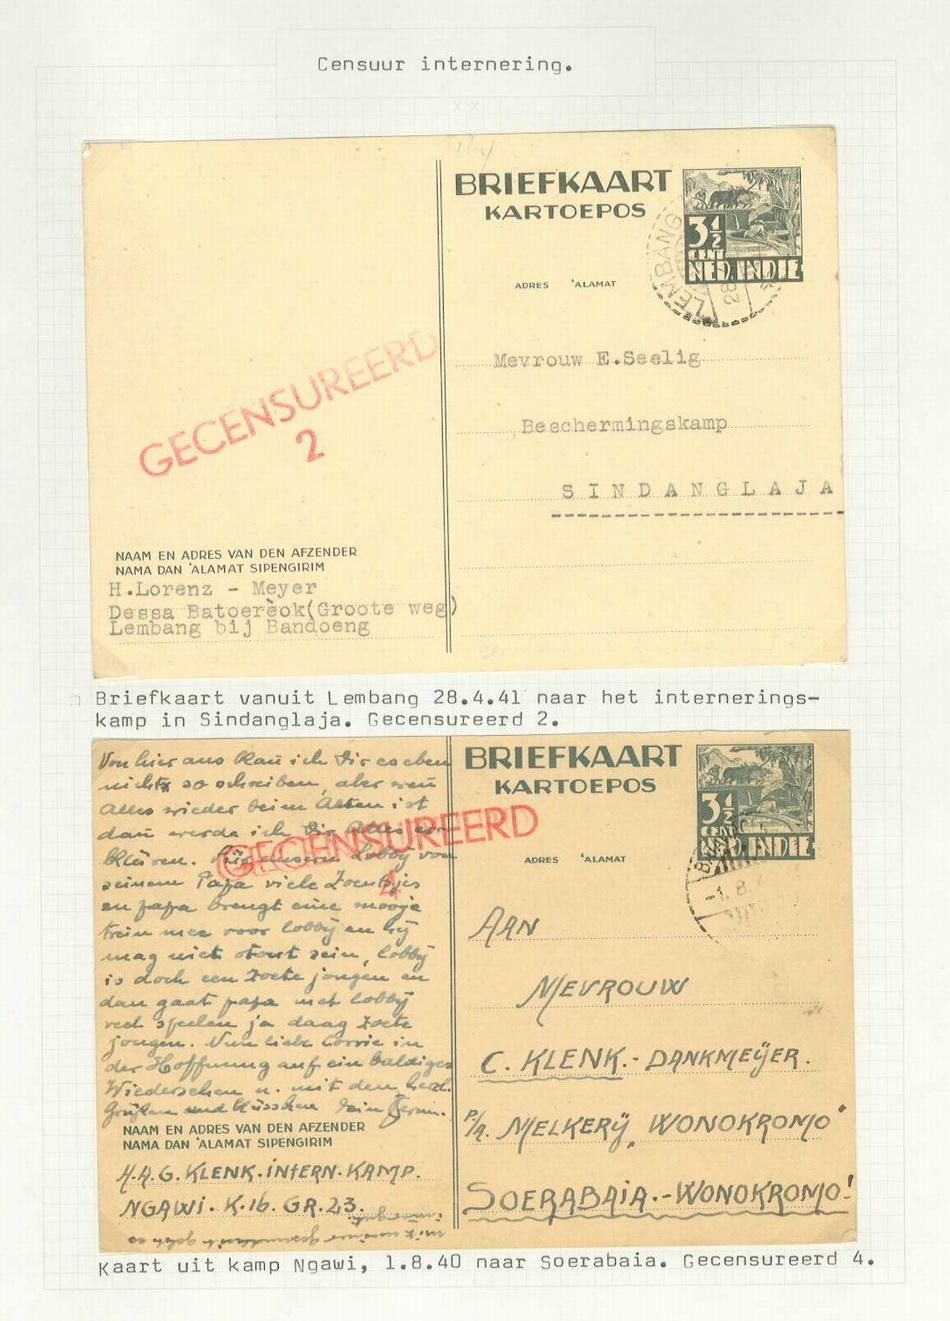 Censuur internering.
164
BRIEFKAART
KARTOEPOS
3½
CENT
NED. INDIE
LEMBANG
28
ADRES 'ALAMAT
Mevrouw E.Seelig
Beschermingskamp
SINDANGLAJA
GECENSUREERD
2
NAAM EN ADRES VAN DEN AFZENDER
NAMA DAN 'ALAMAT SIPENGIRIM
H.Lorenz - Meyer
Dessa Batoerèok(Groote weg)
Lembang bij Bandoeng
Briefkaart vanuit Lembang 28.4.41 naar het internerings-
kamp in Sindanglaja. Gecensureerd 2.
Von hier aus kan ich Dir es eben
nichts so schreiben, aber wen
Alles wieder beim Alten ist
dan werde ich Dir Alles er-
klären. Für unsern Lobby von
seinem Papa viele Zoentjes
en papa brengt eine mooje
trein mee voor lobby en hij
mag niet stout sein, lobby
is doch een zoete jongen en
dan gaat papa met lobby
veel spelen ja daag zoete
jongen. Nun liebe Corrie in
der Hoffnung auf ein baldiges
Wiedersehen u. mit den herzl.
Grüßen und Küsschen Dein
GECENSUREERD
4
NAAM EN ADRES VAN DEN AFZENDER
NAMA DAN 'ALAMAT SIPENGIRIM
H.A.G. KLENK. INTERN. KAMP.
NGAWI. K.16. GR. 23.
BRIEFKAART
KARTOEPOS
3½
CENT
NED. INDIE
-1.8.
ADRES 'ALAMAT
AAN
MEVROUW
C. KLENK.- DANKMEŸER.
P/A. MELKERŸ „WONOKROMO"
SOERABAIA.-WONOKROMO!
Kaart uit kamp Ngawi, 1.8.40 naar Soerabaia. Gecensureerd 4.